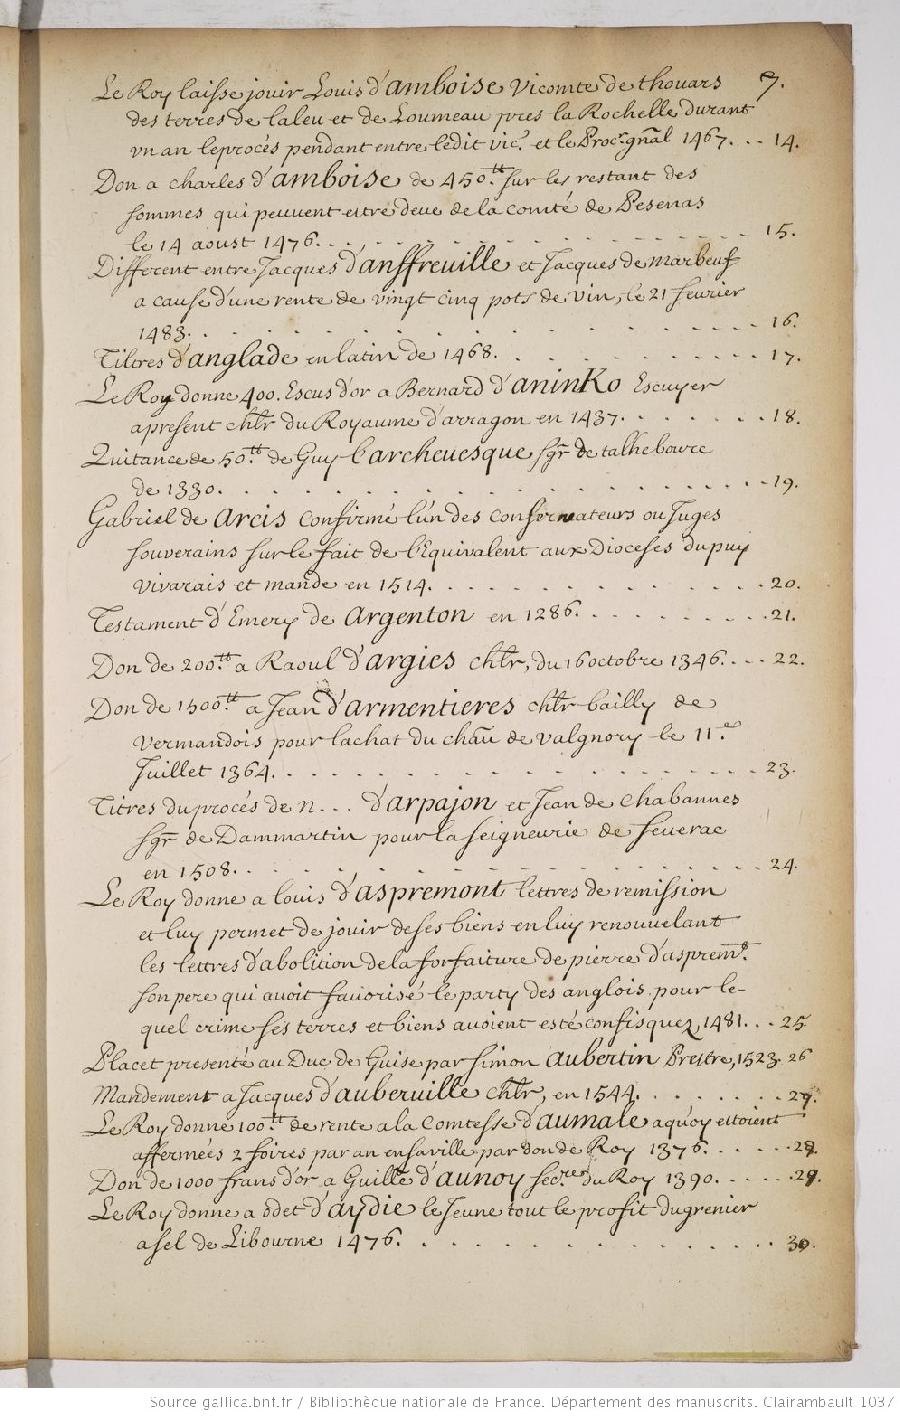 7.
Le Roy laisse jouir Louis d'amboise Vicomte de thouars
des terres de laleu et de Loumeau pres la Rochelle durant
vn an le procés pendant entre ledit vic.e et le Procr. gnãl 1467. . . 14.
Don a charles d'amboise de 450.tt sur les restant des
sommes qui peuvent estre deue de la comté de Pesenas
le 14 aoust 1476. . . . . . . . . . . . . . 15.
Different entre Jacques d'anffreuille et Jacques de marbeuf
a cause d'une rente de vingt cinq pots de vin, le 21 feurier
1483. . . . . . . . . . . . . . . . . 16.
Tiltres d'anglade en latin de 1468. . . . . . . . . 17.
Le Roy donne 400. Escus d'or a Bernard d'aninko Escuyer
apresent chlr du Royaume d'arragon en 1437. . . . . . . 18.
Quitance de 50.tt de Guy l'archeuesque sgr de talhebovre
de 1330. . . . . . . . . . . . . . . . 19.
Gabriel de Arcis confirmé l'un des conservateurs ou Juges
souverains sur le fait de l'Equivalent aux Dioceses du puy
vivarais et mande en 1514. . . . . . . . . . . 20.
Testament d'Emery de Argenton en 1286. . . . . . . 21.
Don de 200.tt a Raoul d'argies chlr, du 16 octobre 1346. . . . 22.
Don de 1500.tt a Jean d'armentieres chlr bailly de
vermandois pour l'achat du chãu de valgnory le 11.e
Juillet 1364. . . . . . . . . . . . . . . 23.
Titres du procés de n . . . d'arpajon et Jean de Chabannes
sgr de Dammartin pour la seigneurie de severac
en 1508. . . . . . . . . . . . . . . . 24.
Le Roy donne a louis d'aspremont lettres de remission
et luy permet de jouir de ses biens en luy renouvelant
les lettres d'abolition de la forfaiture de pierre d'asprem.t
son pere qui avoit favorisé le party des anglois pour le-
quel crime ses terres et biens avoient esté confisquez, 1481. . . 25
Placet presenté au Duc de Guise par simon aubertin Prestre, 1523. 26
Mandement a Jacques d'auberuille chlr, en 1544. . . . . . . 27.
Le Roy donne 100.tt de rente a la Comtesse d'aumale aquoy estoient
affermées 2 foires par an en sa ville par don de Roy 1376. . . . . . 28.
Don de 1000 frans d'or a Guille d'aunoy secre. du Roy 1390. . . . . . 29.
Le Roy donne a odet d'aydie le Jeune tout le profit du grenier
a sel de Libourne 1476. . . . . . . . . . . . . 30.
Source gallica.bnf.fr / Bibliothèque nationale de France. Département des manuscrits. Clairambault 1037